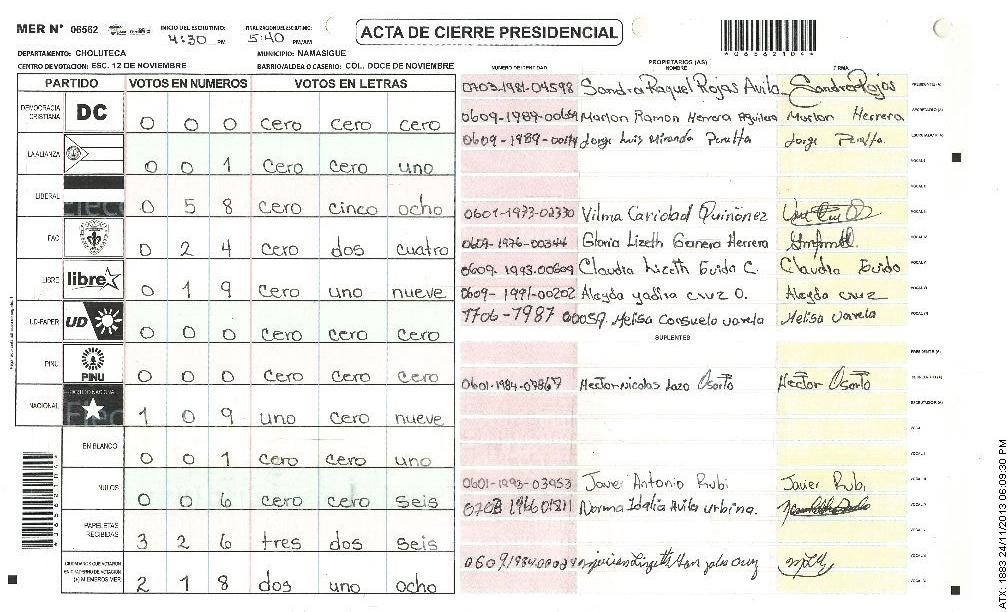 MER Nº 06562
INICIO DEL ESCRUTINIO:
4:30 PM
FINALIZACION DEL ESCRUTINIO:
5:40 PM/AM
ACTA DE CIERRE PRESIDENCIAL
DEPARTAMENTO: CHOLUTECA
MUNICIPIO: NAMASIGUE
CENTRO DE VOTACION: ESC. 12 DE NOVIEMBRE
BARRIO/ALDEA O CASERIO: COL. DOCE DE NOVIEMBRE
PARTIDO VOTOS EN NUMEROS VOTOS EN LETRAS
DEMOCRACIA CRISTIANA DC 0 0 0 cero cero cero
LA ALIANZA 0 0 1 cero cero uno
LIBERAL 0 5 8 cero cinco ocho
FAC 0 2 4 cero dos cuatro
LIBRE libre 0 1 9 cero uno nueve
UD-FAPER UD 0 0 0 cero cero cero
PINU PINU 0 0 0 cero cero cero
NACIONAL 1 0 9 uno cero nueve
EN BLANCO 0 0 1 cero cero uno
NULOS 0 0 6 cero cero seis
PAPELETAS RECIBIDAS 3 2 6 tres dos seis
CIUDADANOS QUE VOTARON
EN CUADERNO DE VOTACION
(+) MIEMBROS MER 2 1 8 dos uno ocho
PROPIETARIOS (AS)
NUMERO DE IDENTIDAD NOMBRE FIRMA
0703-1981-04598 Sandra Raquel Rojas Avila Sandra Rojas
Marlon Ramon Herrera Aguilera Marlon Herrera
Jorge Luis Miranda Peralta Jorge Peralta
0601-1973-02330 Vilma Caridad Quiñonez
0609-1976-00344 Gloria Lizeth Herrera
0609-1993-00609 Claudia Lizeth Euido C. Claudia Euido
0609-1991-00202 Alayda yadira cruz O. Alayda cruz
1706-1987 00059 Melisa Consuelo varela Melisa varela
SUPLENTES
Hector nicolas Lazo Osorto Hector Osorto
0601-1993-03953 Javier Antonio Rubi Javier Rubi
Norma Idalia Avila urbina.
ATX: 1683 24/11/2013 06:09:30 PM